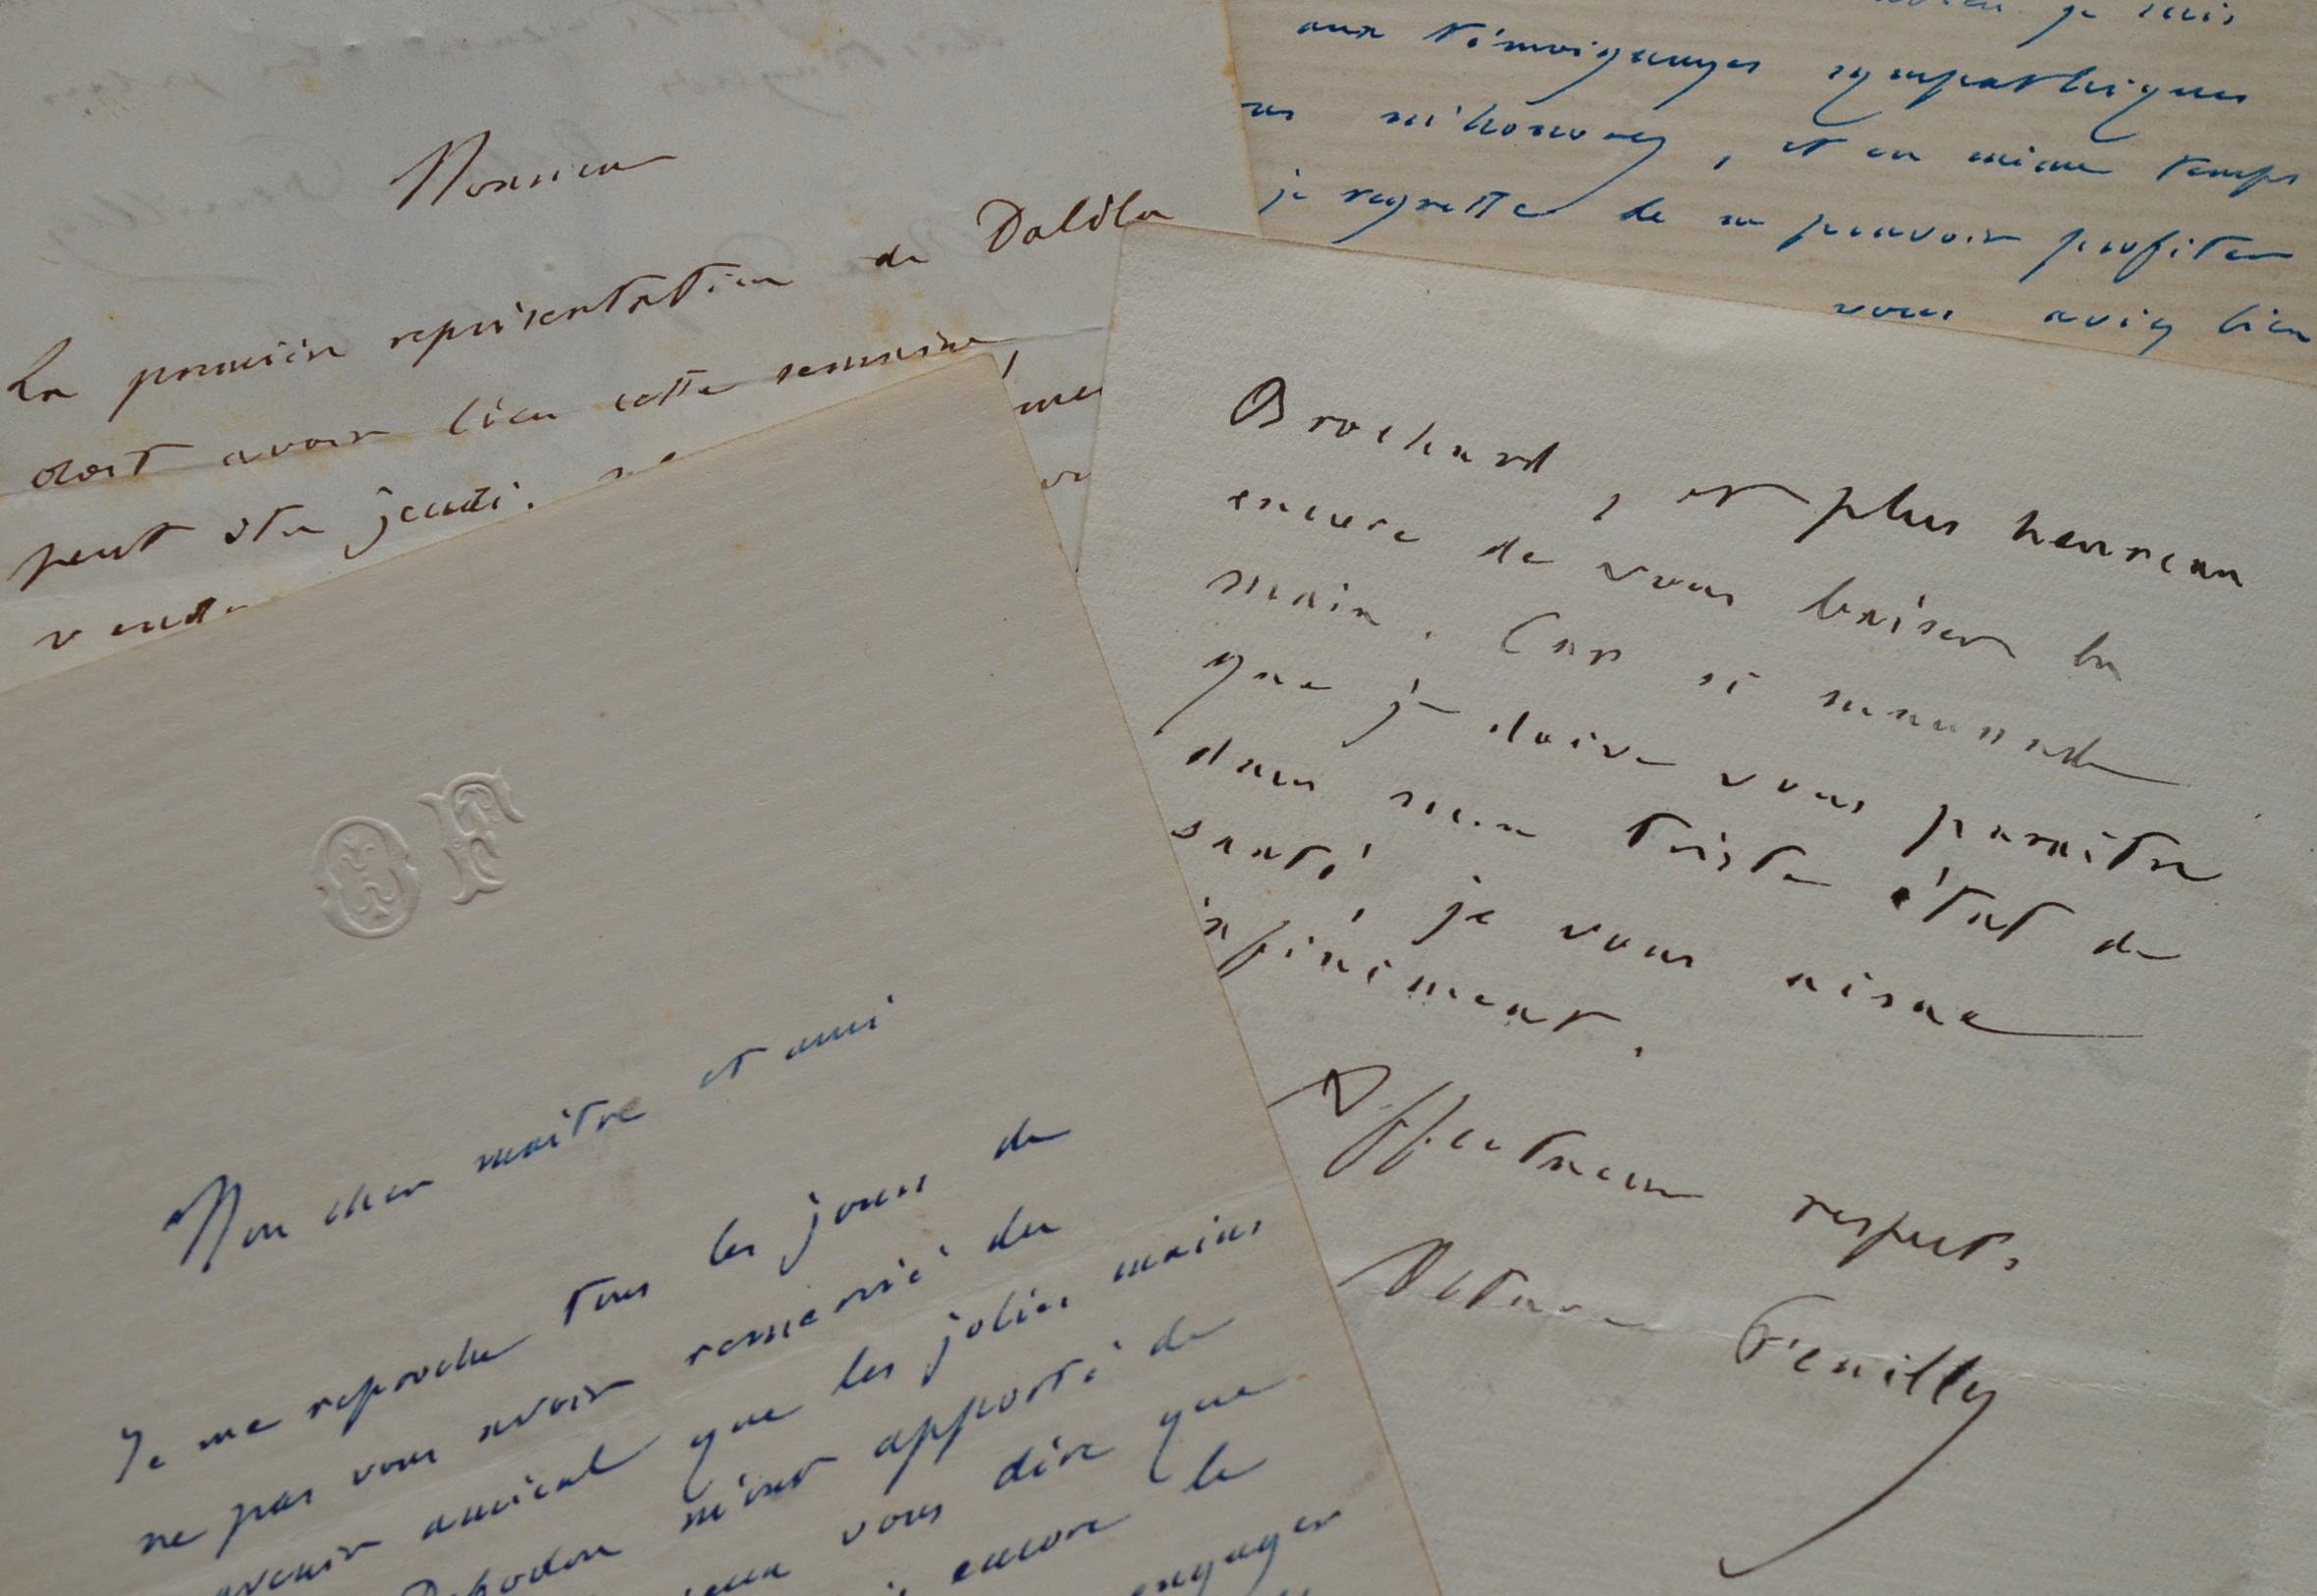 Monsieur
La première représentation de Dalila
doit avoir lieu cette semaine,
peut être jeudi.
aux témoignages sympathiques
m'honorez, et en même temps
je regrette de ne pouvoir profiter
vous aviez bien
Brochard, et plus heureux
encore de vous baiser la
main. Car si maussade
que je doive vous paraître
dans mon triste état de
santé, je vous aime
infiniment.
Affectueux respects.
Octave Feuillet
OF
Mon cher maître et ami
Je me reproche tous les jours de
ne pas vous avoir remercié du
amical que les jolies mains
m'ont apporté de
vous dire que
encore le
engager